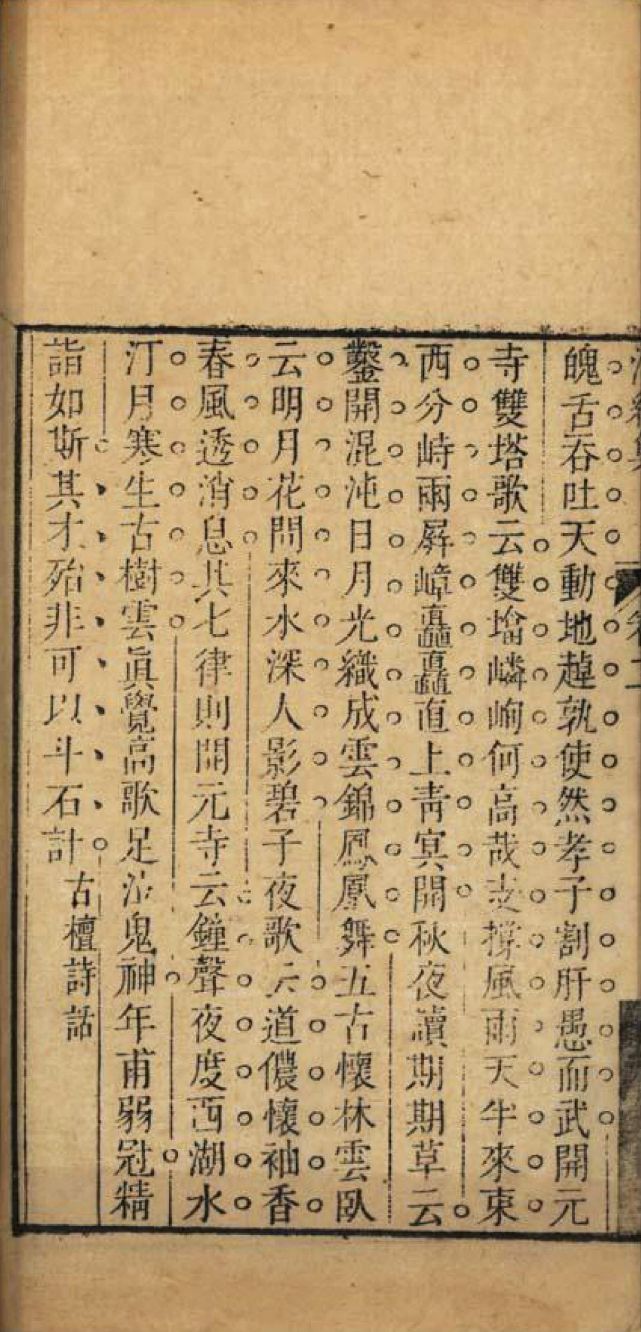 魄舌吞吐天動地趠孰使然孝子割肝愚而武開元
寺雙塔歌云雙墖嶙峋何高哉支撐風雨天半來東
西分峙兩屛嶂矗矗直上靑冥開秋夜讀期期草云
鑿開混沌日月光織成雲錦鳳凰舞五古懷林雲臥
云明月花間來水深人影碧子夜歌云道儂懷袖香
春風透消息其七律則開元寺云鐘聲夜度西湖水
汀月寒生古樹雲眞覺高歌足泣鬼神年甫弱冠精
詣如斯其才殆非可以斗石計古檀詩話